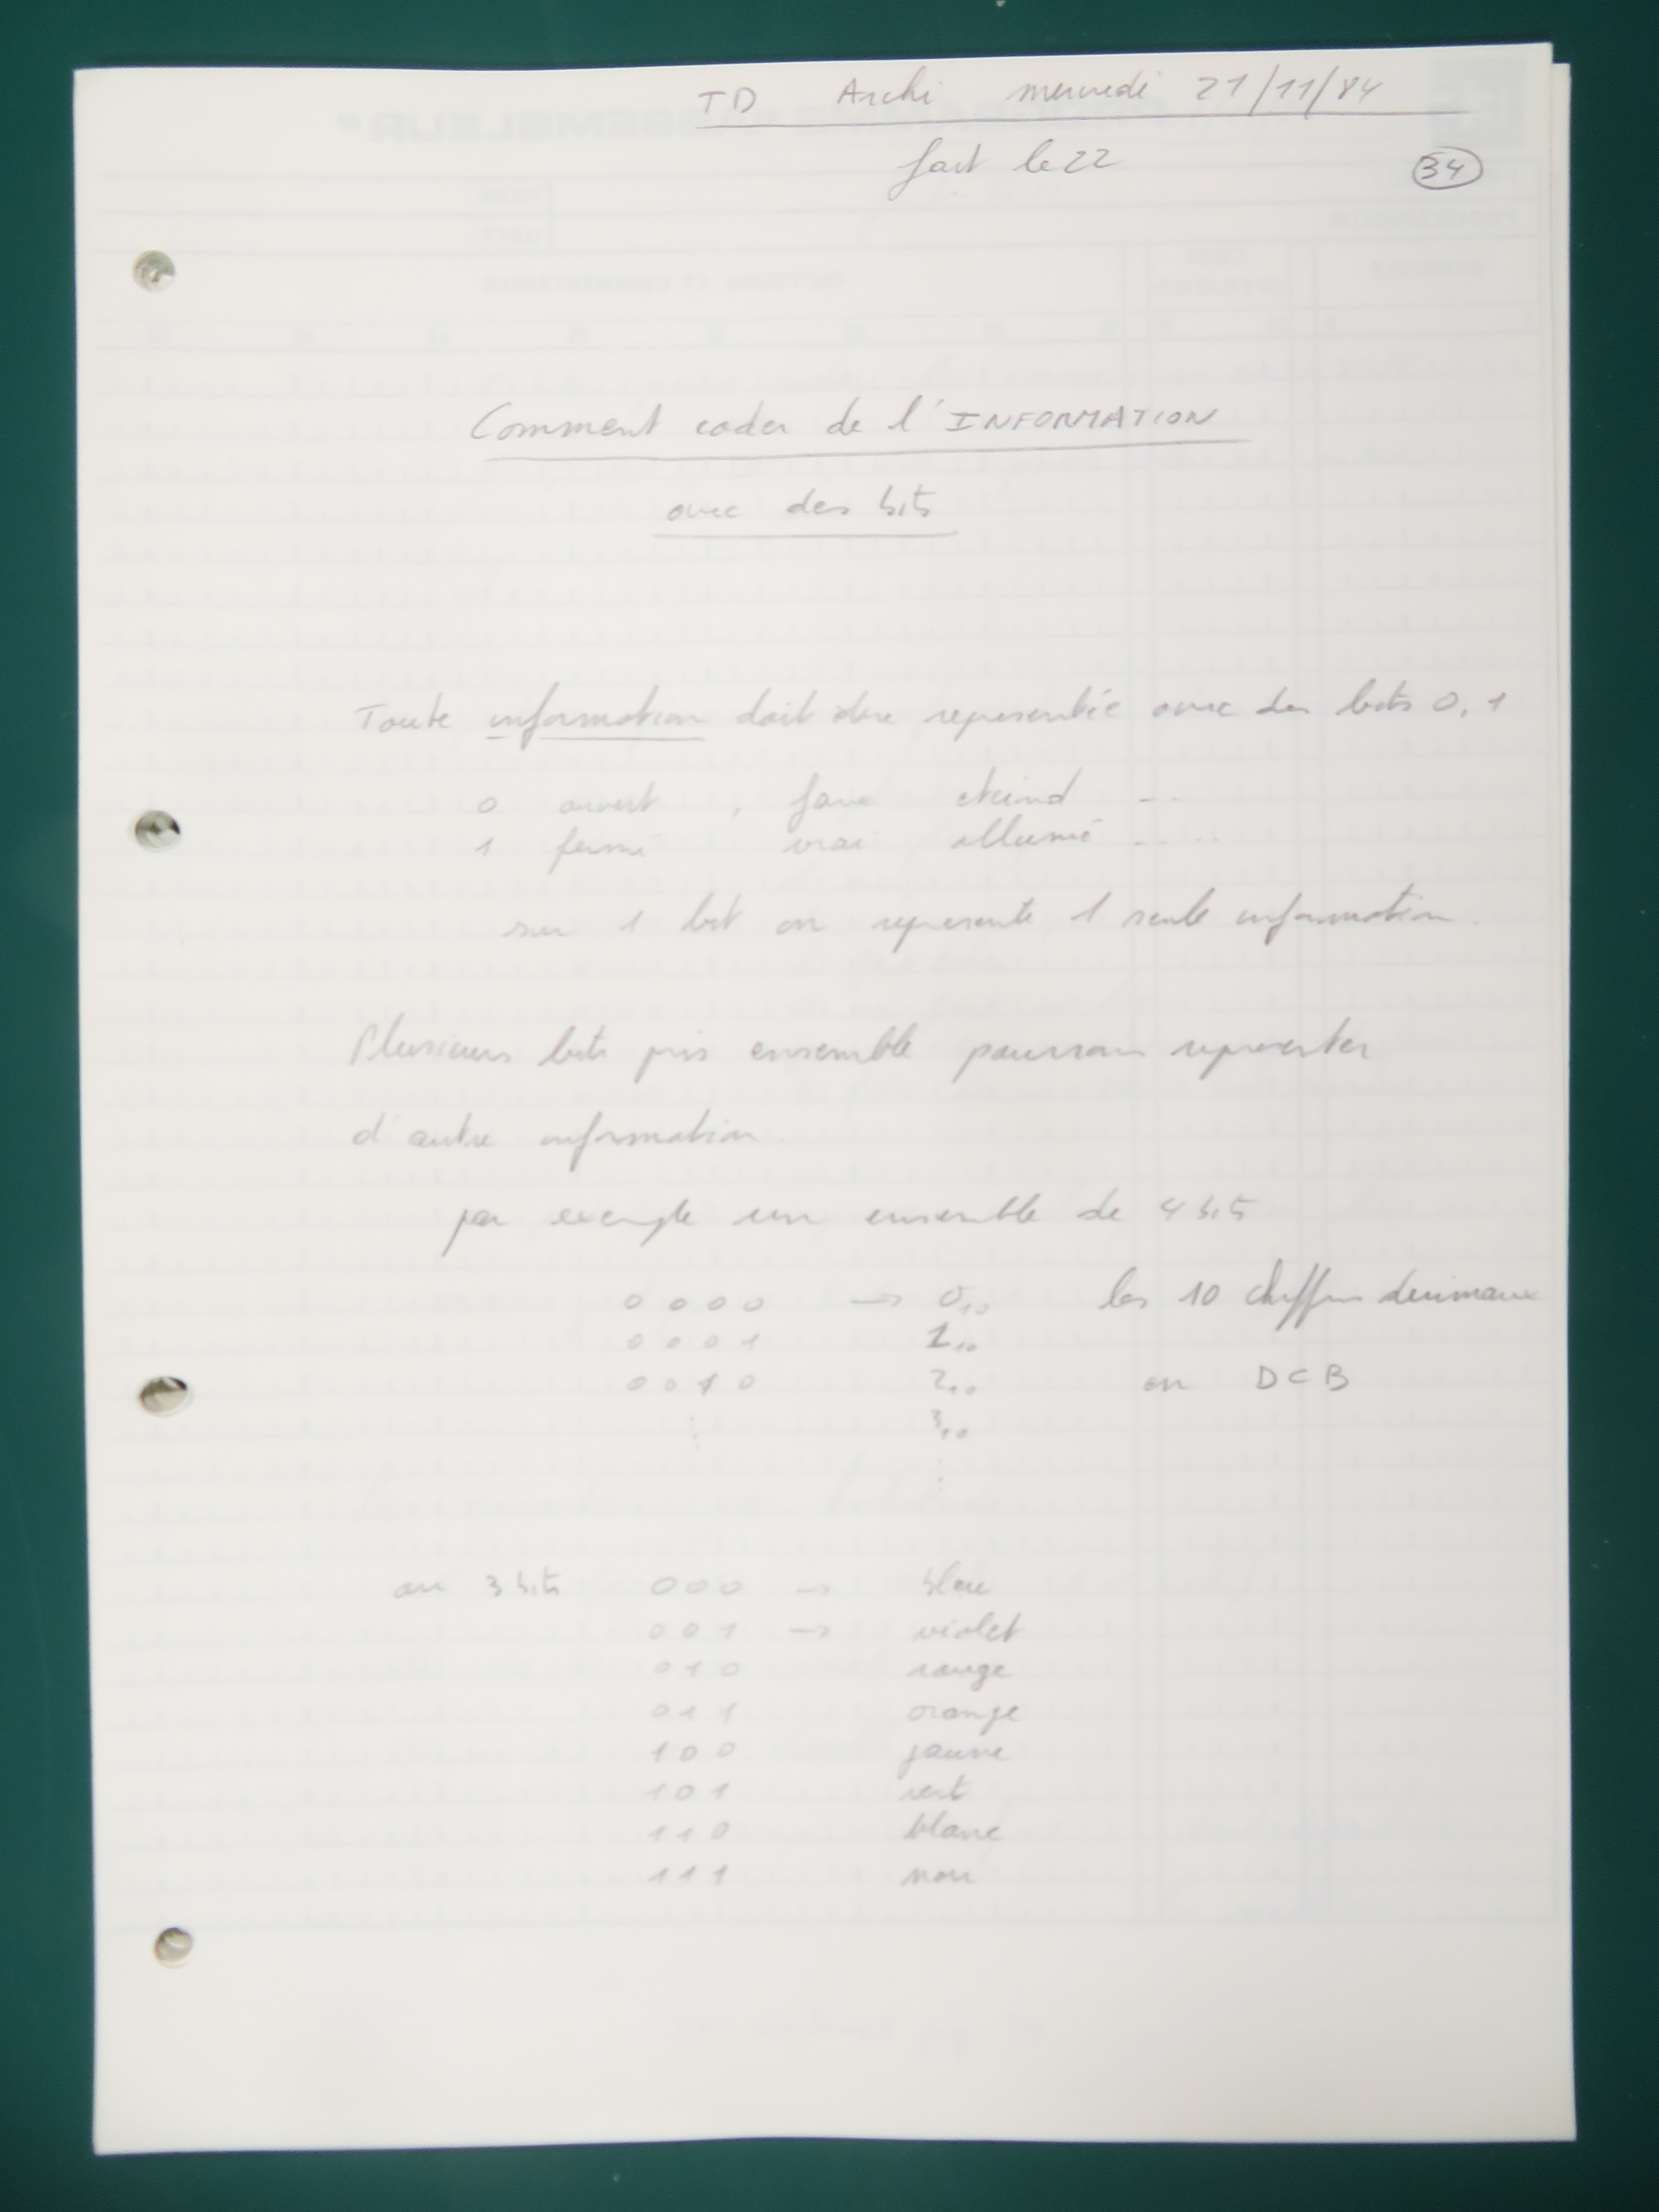 TD Archi mercredi 21/11/84
fait le 22
34
Comment coder de l'INFORMATION
avec des bits
Toute information doit être representée avec des bits 0, 1
0 ouvert , faux eteind --
1 fermé vrai allumé -----
sur 1 bit on represente 1 seule information.
Plusieurs bits pris ensemble pourront representer
d'autre information.
par exemple un ensemble de 4 bits
0 0 0 0 → 0₁₀ les 10 chiffres decimaux
0 0 0 1 1₁₀
0 0 1 0 2₁₀ en DCB
⋮ 3₁₀
⋮
sur 3 bits 0 0 0 → bleu
0 0 1 → violet
0 1 0 rouge
0 1 1 orange
1 0 0 jaune
1 0 1 vert
1 1 0 blanc
1 1 1 noir